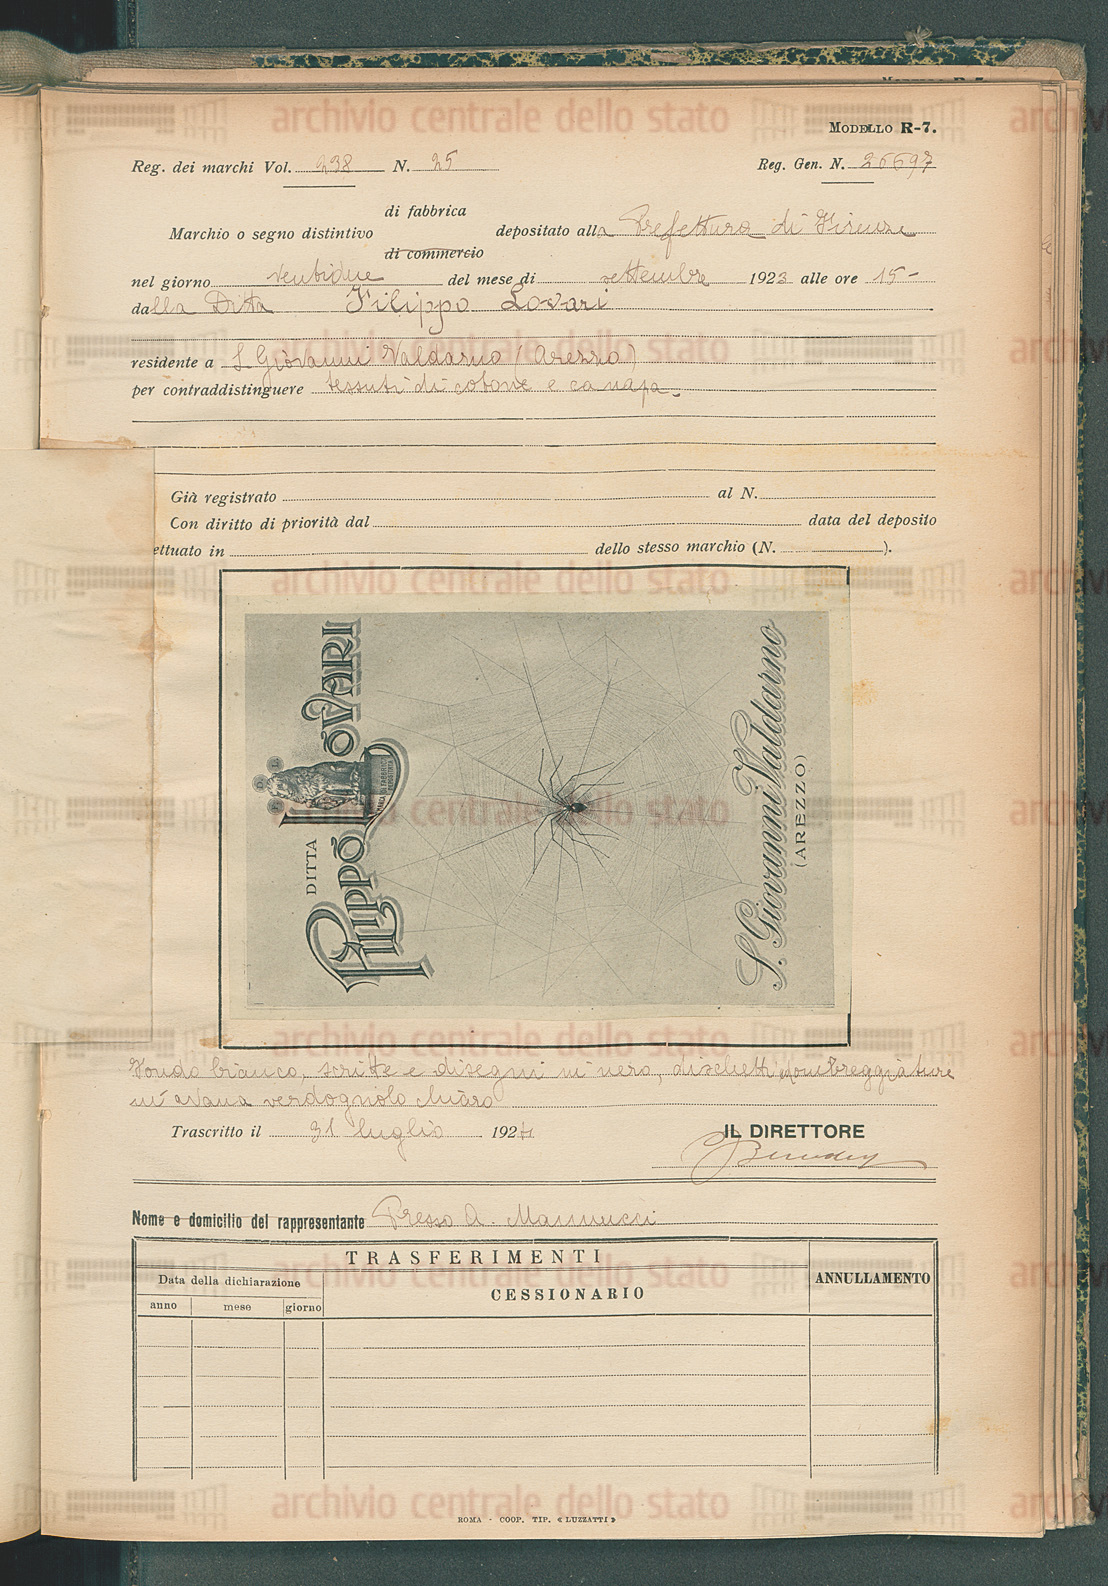 MODELLO R-7.
Reg. dei marchi Vol. 238 N. 25 Reg. Gen. N. 26697
di fabbrica
Marchio o segno distintivo depositato alla Prefettura di Firenze
di commercio
nel giorno ventidue del mese di settembre 1923 alle ore 15-
dalla Ditta Filippo Lovari
residente a S. Giovanni Valdarno (Arezzo)
per contraddistinguere tessuti di cotone e canapa.
Già registrato al N.
Con diritto di priorità dal data del deposito
ettuato in dello stesso marchio (N. ).
DITTA
FILIPPO LOVARI
S. Giovanni Valdarno
(AREZZO)
Fondo bianco, scritte e disegni in nero, dischetti ombreggiature
in avana verdognolo chiaro
Trascritto il 31 luglio 1924
IL DIRETTORE
Nome e domicilio del rappresentante Presso A. Mannucci
TRASFERIMENTI
Data della dichiarazione
anno mese giorno
CESSIONARIO
ANNULLAMENTO
ROMA - COOP. TIP. « LUZZATTI »
archivio centrale dello stato